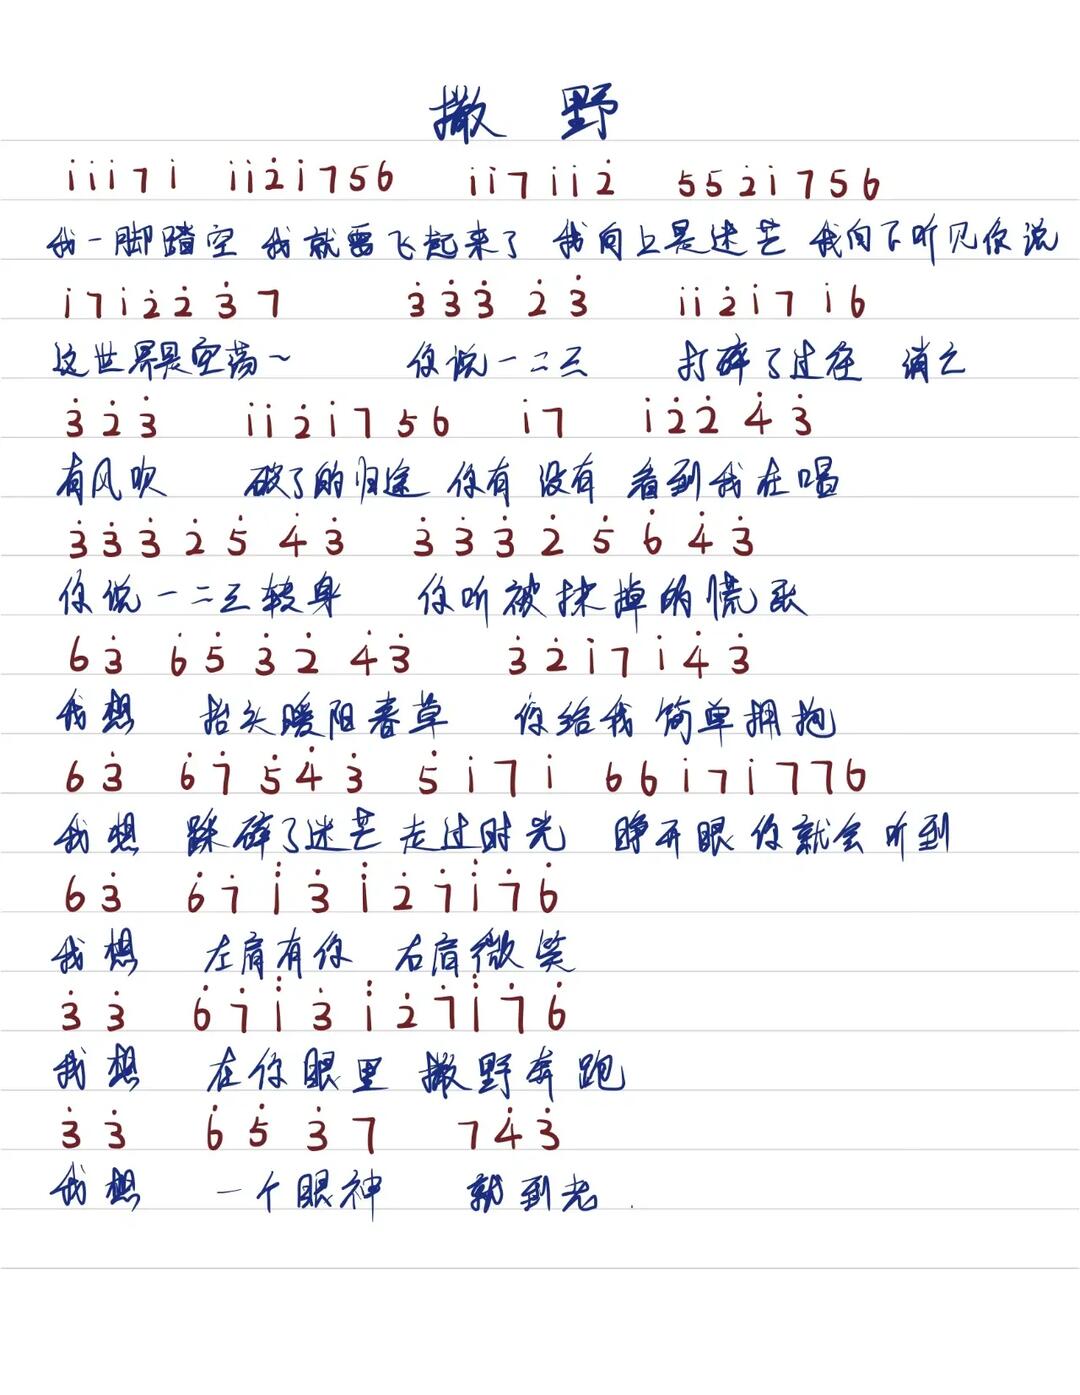 撒 野
i̇ i̇ i̇ 7 i̇  i̇ i̇ 2̇ i̇ 7 5 6  i̇ i̇ 7 i̇ i̇ 2̇  5 5 2̇ i̇ 7 5 6
我一脚踏空 我就要飞起来了 我向上是迷茫 我向下听见你说
i̇ 7 i̇ 2̇ 2̇ 3̇ 7  3̇ 3̇ 3̇ 2̇ 3̇  i̇ i̇ 2̇ i̇ 7 i̇ 6
这世界是空荡~ 你说一二三 打碎了过往 消亡
3̇ 2̇ 3̇  i̇ i̇ 2̇ i̇ 7 5 6  i̇ 7  i̇ 2̇ 2̇ 4̇ 3̇
有风吹 破了的归途 你有没有 看到我在唱
3̇ 3̇ 3̇ 2̇ 5̇ 4̇ 3̇  3̇ 3̇ 3̇ 2̇ 5̇ 6̇ 4̇ 3̇
你说一二三转身 你听被抹掉的慌张
6 3̇  6̇ 5̇ 3̇ 2̇ 4̇ 3̇  3̇ 2̇ i̇ 7 i̇ 4̇ 3̇
我想 抬头暖阳春草 你给我简单拥抱
6 3̇  6̇ 7̇ 5̇ 4̇ 3̇  5̇ i̇ 7 i̇  6 6 i̇ 7 i̇ 7 7 6
我想 踩碎了迷茫走过时光 睁开眼你就会听到
6 3̇  6̇ 7̇ i̇̇ 3̇ i̇̇ 2̇ 7̇ i̇̇ 7̇ 6̇
我想 左肩有你 右肩微笑
3̇ 3̇  6̇ 7̇ i̇̇ 3̇ i̇̇ 2̇ 7̇ i̇̇ 7̇ 6̇
我想 在你眼里 撒野奔跑
3̇ 3̇  6̇ 5̇ 3̇ 7  7 4̇ 3̇
我想 一个眼神 就到老.